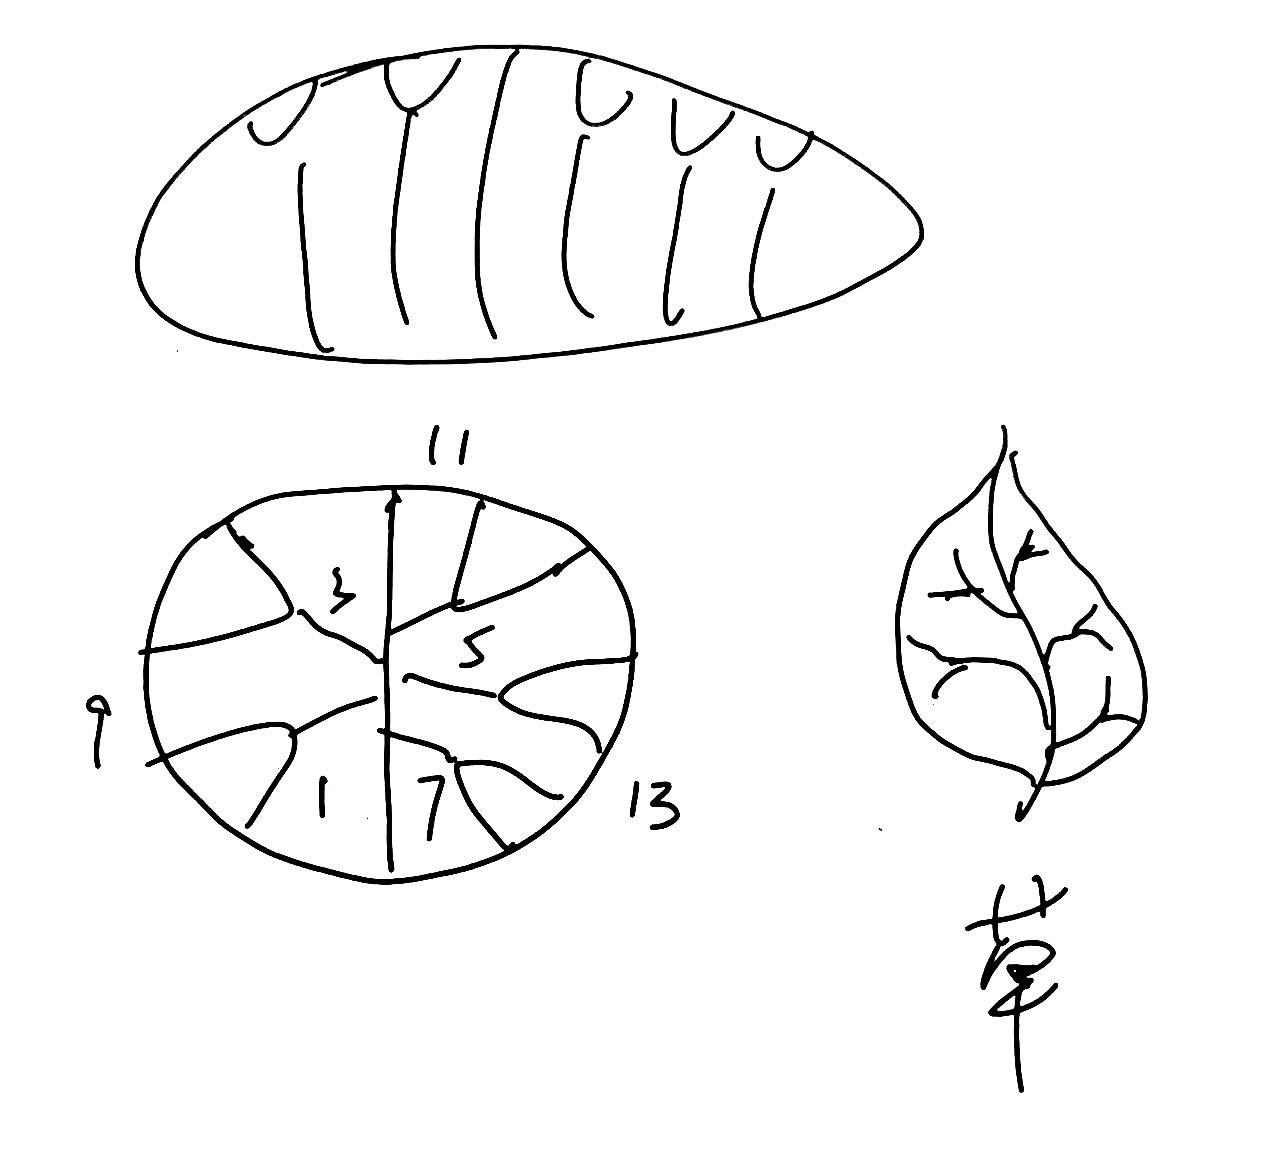 11
3
5
9
1
7
13
草